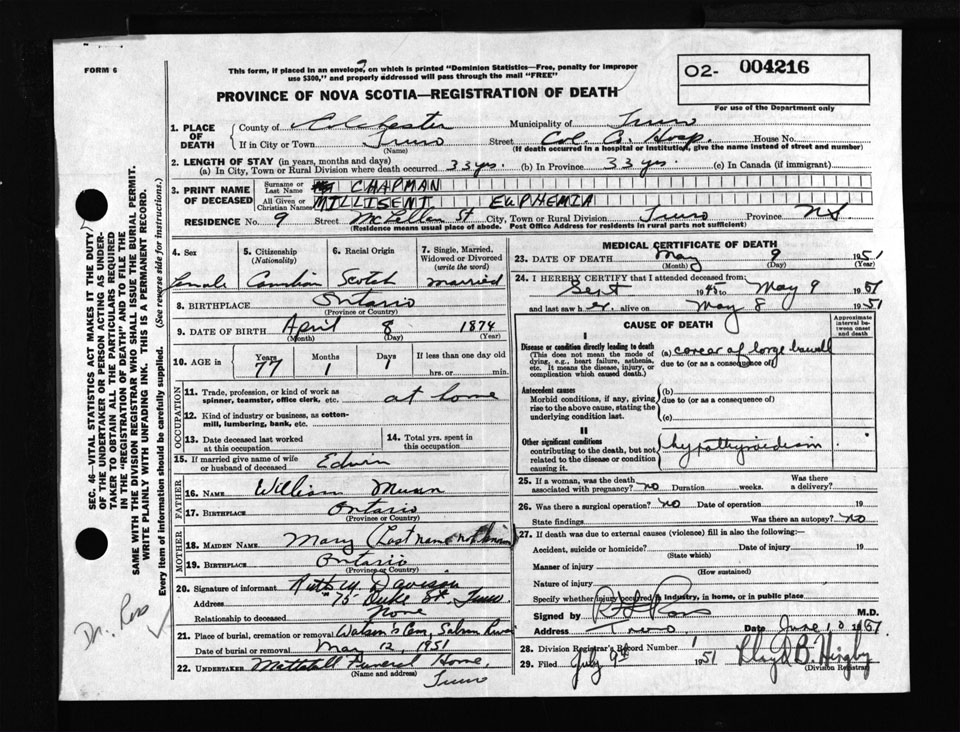 FORM 6
This form, if placed in an envelope, on which is printed "Dominion Statistics—Free, penalty for improper
use $300," and properly addressed will pass through the mail "FREE"
02- 004216
For use of the Department only
PROVINCE OF NOVA SCOTIA—REGISTRATION OF DEATH
1. PLACE OF DEATH
County of Colchester Municipality of Truro
If in City or Town Truro Street Col. Co. Hosp. House No.
(Name) (If death occurred in a hospital or institution, give the name instead of street and number)
2. LENGTH OF STAY (in years, months and days)
(a) In City, Town or Rural Division where death occurred 33 yrs. (b) In Province 33 yrs. (c) In Canada (if immigrant)
3. PRINT NAME OF DECEASED
Surname or Last Name CHAPMAN
All Given or Christian Names MILLISENT EUPHEMIA
RESIDENCE No. 9 Street McClellan St City, Town or Rural Division Truro Province NS
(Residence means usual place of abode. Post Office Address for residents in rural parts not sufficient)
4. Sex
female
5. Citizenship (Nationality)
Canadian
6. Racial Origin
Scotch
7. Single, Married, Widowed or Divorced (write the word)
married
8. BIRTHPLACE Ontario
(Province or Country)
9. DATE OF BIRTH April 8 1874
(Month) (Day) (Year)
10. AGE in Years 77 Months 1 Days 1 If less than one day old
hrs. or min.
OCCUPATION
11. Trade, profession, or kind of work as spinner, teamster, office clerk, etc. at home
12. Kind of industry or business, as cotton-mill, lumbering, bank, etc.
13. Date deceased last worked at this occupation
14. Total yrs. spent in this occupation
15. If married give name of wife or husband of deceased Edwin
FATHER
16. Name William Munn
17. BIRTHPLACE Ontario
(Province or Country)
MOTHER
18. MAIDEN NAME Mary (Last name not known)
19. BIRTHPLACE Ontario
(Province or Country)
20. Signature of informant Ruth M. Davison
Address 75 Duke St. Truro
Relationship to deceased None
21. Place of burial, cremation or removal Watson's Cem, Salmon River
Date of burial or removal May 12, 1951
22. UNDERTAKER Mattatall Funeral Home,
(Name and address) Truro
MEDICAL CERTIFICATE OF DEATH
23. DATE OF DEATH May 9 1951
(Month) (Day) (Year)
24. I HEREBY CERTIFY that I attended deceased from:
Sept 1945 to May 9 1951
and last saw her alive on May 8 1951
CAUSE OF DEATH
Approximate interval between onset and death
I
Disease or condition directly leading to death
(This does not mean the mode of dying, e.g., heart failure, asthenia, etc. It means the disease, injury, or complication which caused death.)
(a) cancer of large bowell
due to (or as a consequence of)
Antecedent causes
Morbid conditions, if any, giving rise to the above cause, stating the underlying condition last.
(b)
due to (or as a consequence of)
(c)
II
Other significant conditions
contributing to the death, but not related to the disease or condition causing it.
hypothyroidism
25. If a woman, was the death associated with pregnancy? no Duration weeks. Was there a delivery?
26. Was there a surgical operation? no Date of operation 19
State findings Was there an autopsy? no
27. If death was due to external causes (violence) fill in also the following:—
Accident, suicide or homicide? Date of injury 19
(State which)
Manner of injury
(How sustained)
Nature of injury
Specify whether injury occurred in industry, in home, or in public place
Signed by Ross M.D.
Address Truro Date June 10 1951
28. Division Registrar's Record Number
29. Filed July 9th 1951 Lloyd B.
(Division Registrar)
SEC. 46—VITAL STATISTICS ACT MAKES IT THE DUTY
OF THE UNDERTAKER OR PERSON ACTING AS UNDER-
TAKER TO OBTAIN ALL THE PARTICULARS REQUIRED
IN THE "REGISTRATION OF DEATH" AND TO FILE THE
SAME WITH THE DIVISION REGISTRAR WHO SHALL ISSUE THE BURIAL PERMIT.
WRITE PLAINLY WITH UNFADING INK. THIS IS A PERMANENT RECORD.
Every item of information should be carefully supplied. (See reverse side for instructions.)
Dr. Ross